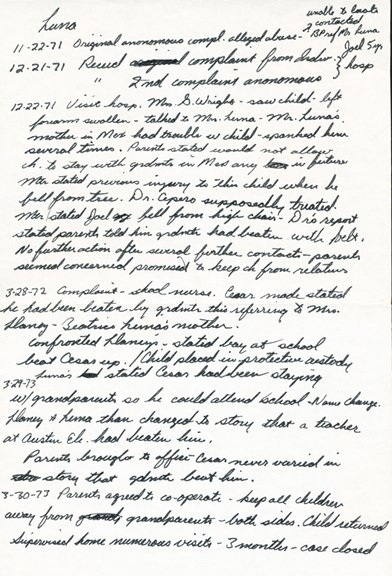 Luna
unable to locate
& contacted
BP ref Mr Luna
11-22-71 Original anonomous compl. alleged abuse-
Joel 5 yr
hosp
12-21-71 Recud complaint from Indiv.
" 2nd complaint anonomous
12-22-71 Visit hosp. Mrs G. Wright - saw child - left
forearm swollen - talked to Mrs. Luna - Mr. Luna's
mother in Mex had trouble w child - spanked here
several times. Parents stated would not allow
ch. to stay with grdnts in Mex any in future
Mtr stated previous injury to this child when he
fell from tree. Dr. Cepero supposedly treated
Mtr stated Joel fell from high chair. Dr's report
stated parents told him grdnts had beaten with belt.
No further action after several further contacts - parents
seemed concerned promised to keep ch from relatives
3-28-72 Complaint - shool nurse. Cesar made stated
he had been beaten by grdnts this referring to Mrs.
Llaney - Beatrice Lunas's mother.
Confronted Llaneys - stated boy at school
beat Cesar up. / Child placed in protective custody
Luna's stated Cesar had been staying
3-29-73
w/ grandparents so he could attend school - Name change.
Llaney & Luna than changed to story that a teacher
at Austin Ele. had beaten him.
Parents brought to office - Cesar never varied in
story that grdmtr beat him.
3-30-73 Parents agreed to co-operate - keep all children
away from grandparents - both sides. Child returned
Supervised home numerous visits - 3 months - case closed